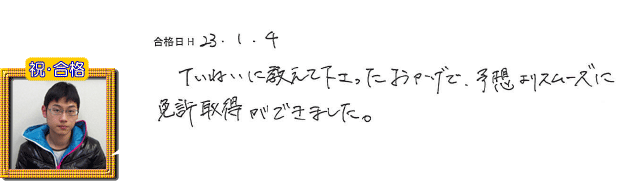 祝・合格
合格日 H 23.1.4
ていねいに教えて下さったおかげで、予想よりスムーズに
免許取得ができました。